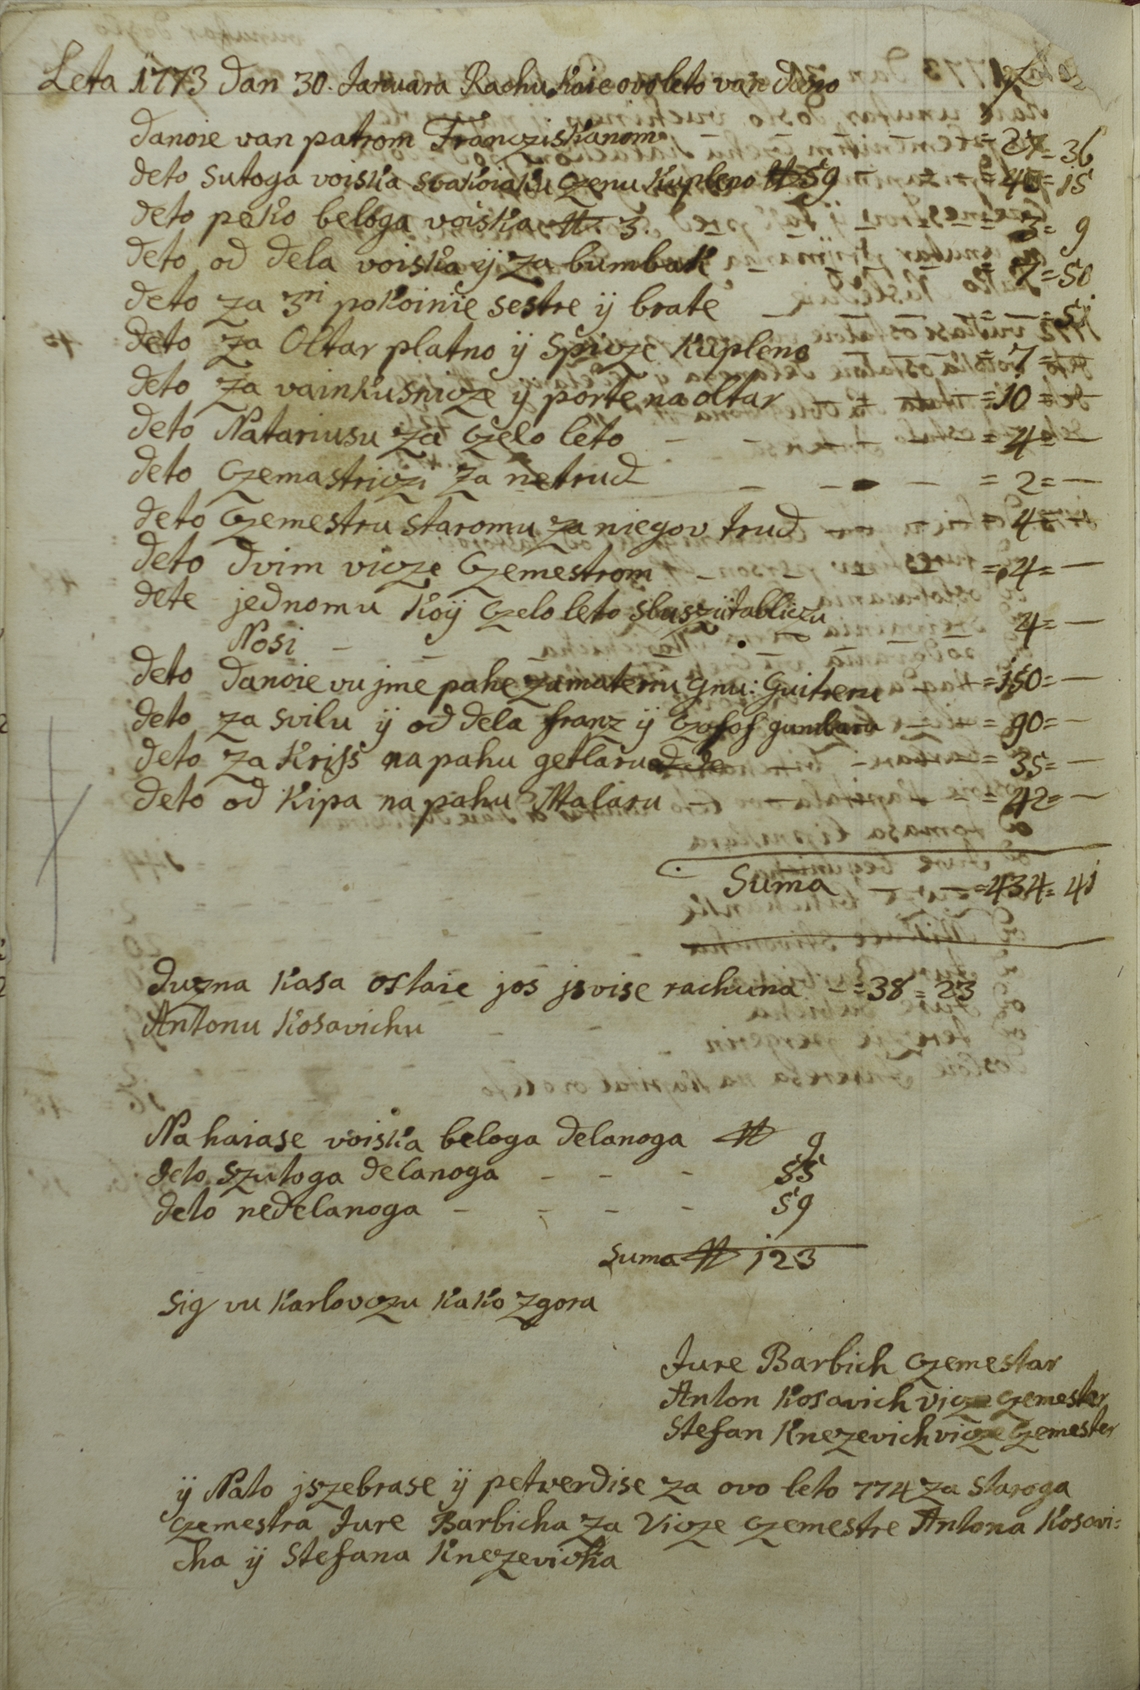 Leta 1773 dan 30. Januara Rachun koie ovo leto van dano
danoie van patrom Francziskanom = 27 = 36
deto sutoga voiska svakoiaku czenu kupleno ℔ 59 = 40 = 15
deto peko beloga voiska ℔ 3 3 = 9
deto od dela voiska ÿ za bumbak = 7 = 50
deto za 3ri pokoinie sestre ÿ brate = 51
deto za Oltar platno ÿ Spicze kupleno = 7 = —
deto za vainkusnicze ÿ porte na oltar = 10 = —
deto Natariusu za czelo leto — — = 4 = —
deto czemastriczi za netrud — — — = 2 = —
deto Czemestru staromu za niegov trud — 4 = —
deto dvim vicze Czemestrom — — = 4 = —
dete jednomu koÿ czelo leto sluszi tabliczu
Nosi — — 4 = —
deto danoie vu jme pahe za materiu Gnu: Guitneru = 150 = —
deto za svilu ÿ od dela franz ÿ gumbara — = 90 = —
deto za kriss na pahu getlaru = 35 = —
deto od kipa na pahu Malaru — — — = 42 = —
Suma — — = 434 = 41
duzna kasa ostaie jos jsvise rachuna — = 38 = 23
Antonu Kosavichu
Na haiase voiska beloga delanoga ℔ 9
deto szutoga delanoga — — — 55
deto nedelanoga — — — — 59
Suma ℔ 123
Sig vu Karlovczu kako zgora
Jure Barbich Czemestar
Anton Kosavich vicze czemester
Stefan Knezevich vicze Czemester
ÿ Nato jszebrase ÿ petverdise za ovo leto 774 za staroga
czemestra Jure Barbicha za Vicze czemestre Antona Kosavi:
cha ÿ Stefana Knezevicha